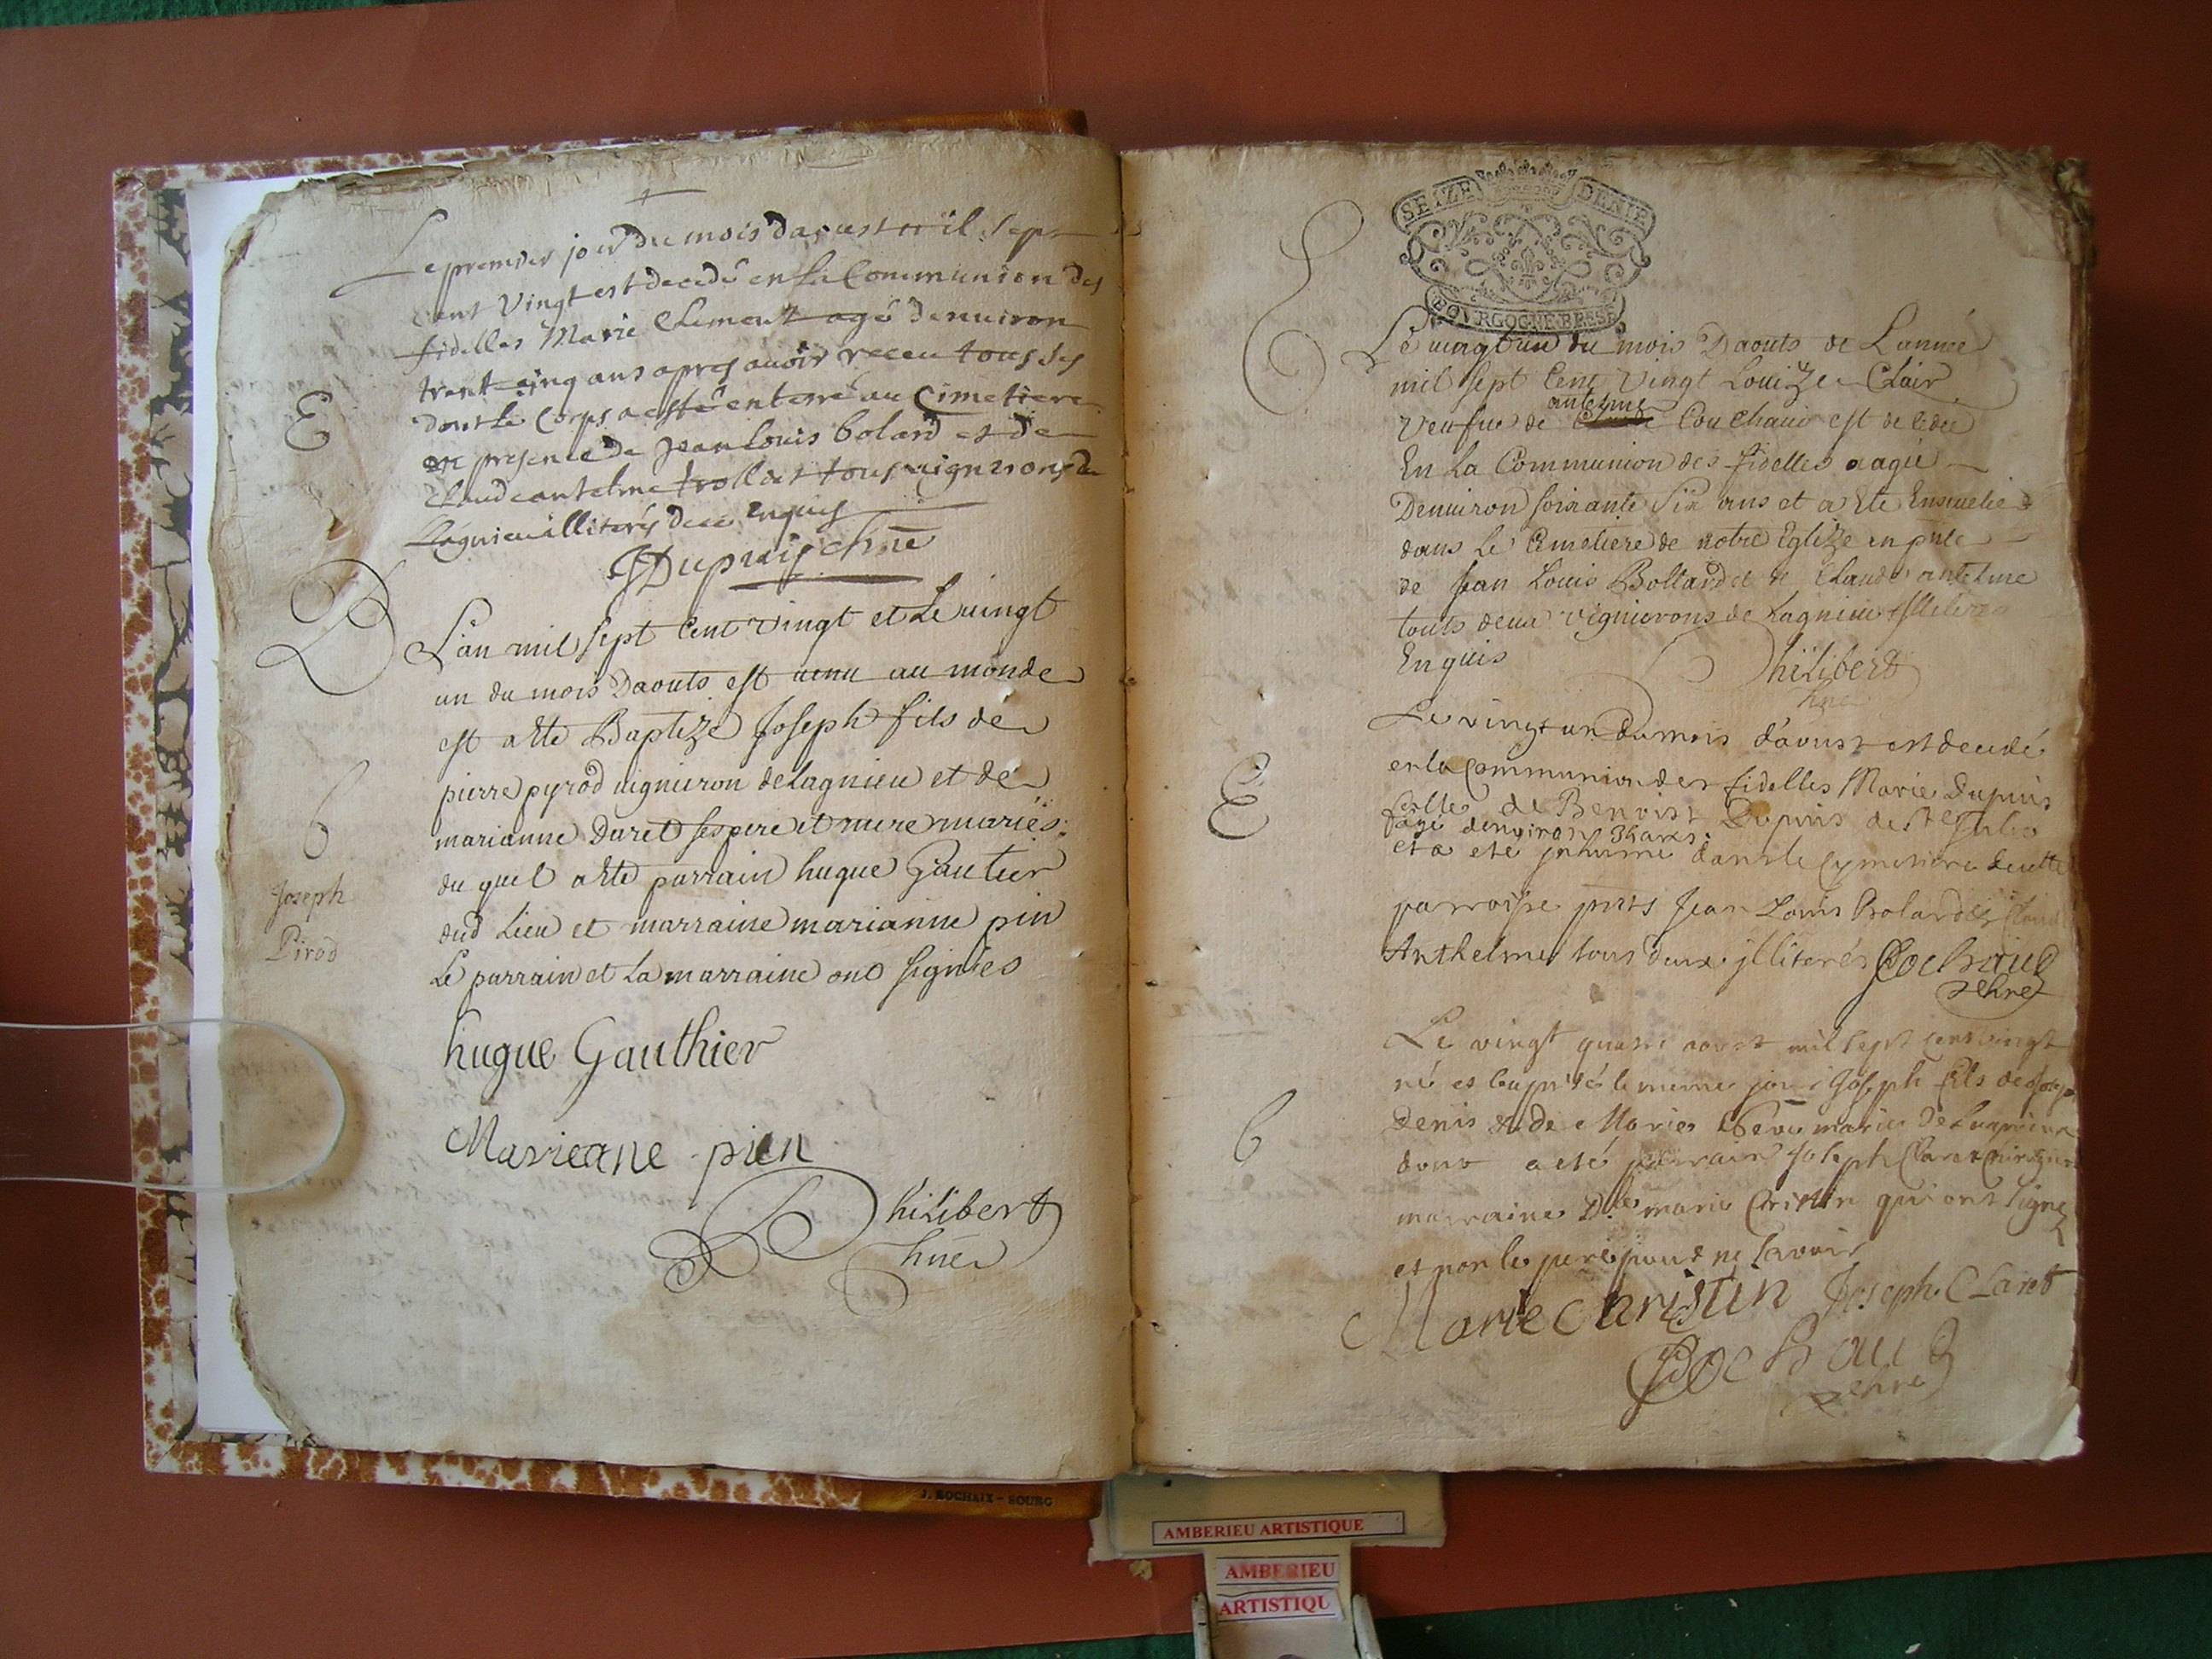 Le premier jour du mois daoust mil sept
cent Vingt est decedé en la Communion des
fidelles Marie Clement agé denuiron
trent cinq ans apres auoir receu tous ses
dont le Corps a esté enterré au Cimetiere
en presence de Jean louis bolard et de
claude antelme tous uignerons de
Lagnieu illiterés de ce enquis
E
JDupuis
L'an mil sept Cent vingt et Le uingt
un du mois Daouts est uenu au monde
est a ete Baptizé Joseph fils de
pierre pyrod uigneron de Lagnieu et de
marianne Duret ses pere et mere mariés
du quel a ete parrain hugue Gautier
dud Lieu et marraine marianne pin
Le parrain et La marraine ont signés
b
Joseph
Pirod
hugue Gauthier
Marieane pien
Philibert
SEIZE DENIE
BOVRGOGNE BRESSE
Le uingt un du mois Daouts de Lanneé
mil sept Cent Vingt Louize Clair
antelme
Veufue de Couchaud est decedeé
En La Communion des fidelles aagée
Denuiron soixante Six ans et a Ete Enseuelie
dans Le Cemetiere de notre Eglize en pnte
de Jean Louis Bollard et de Claude antelme
touts deux vignierons de Lagnieu Illiteres
Enquis
Philibert
Le vingt un du mois d'aoust est decedé
en la Communion des fidelles Marie Dupuis
fille de Benoist Dupuis de St Julin
agé denviron ans
et a eté inhumé dans le Cymetiere de cette
parroisse pnts Jean Louis Bolard et Claud
Anthelme tous deux jlliterés Cochaud
E
Le vingt quatre aoust mil sept cent vingt
né et baptisé le meme jour Joseph fils de Josep
Denis et de Marie mariés
dont a eté parrain Joseph Claret
marraine Dlle marie Cristin qui ont signé
et non le pere pour ne savoir
b
Marie Christin Joseph Claret
Cochaud
J. ROCHAIX - BOURG
AMBERIEU ARTISTIQUE
AMBERIEU
ARTISTIQU